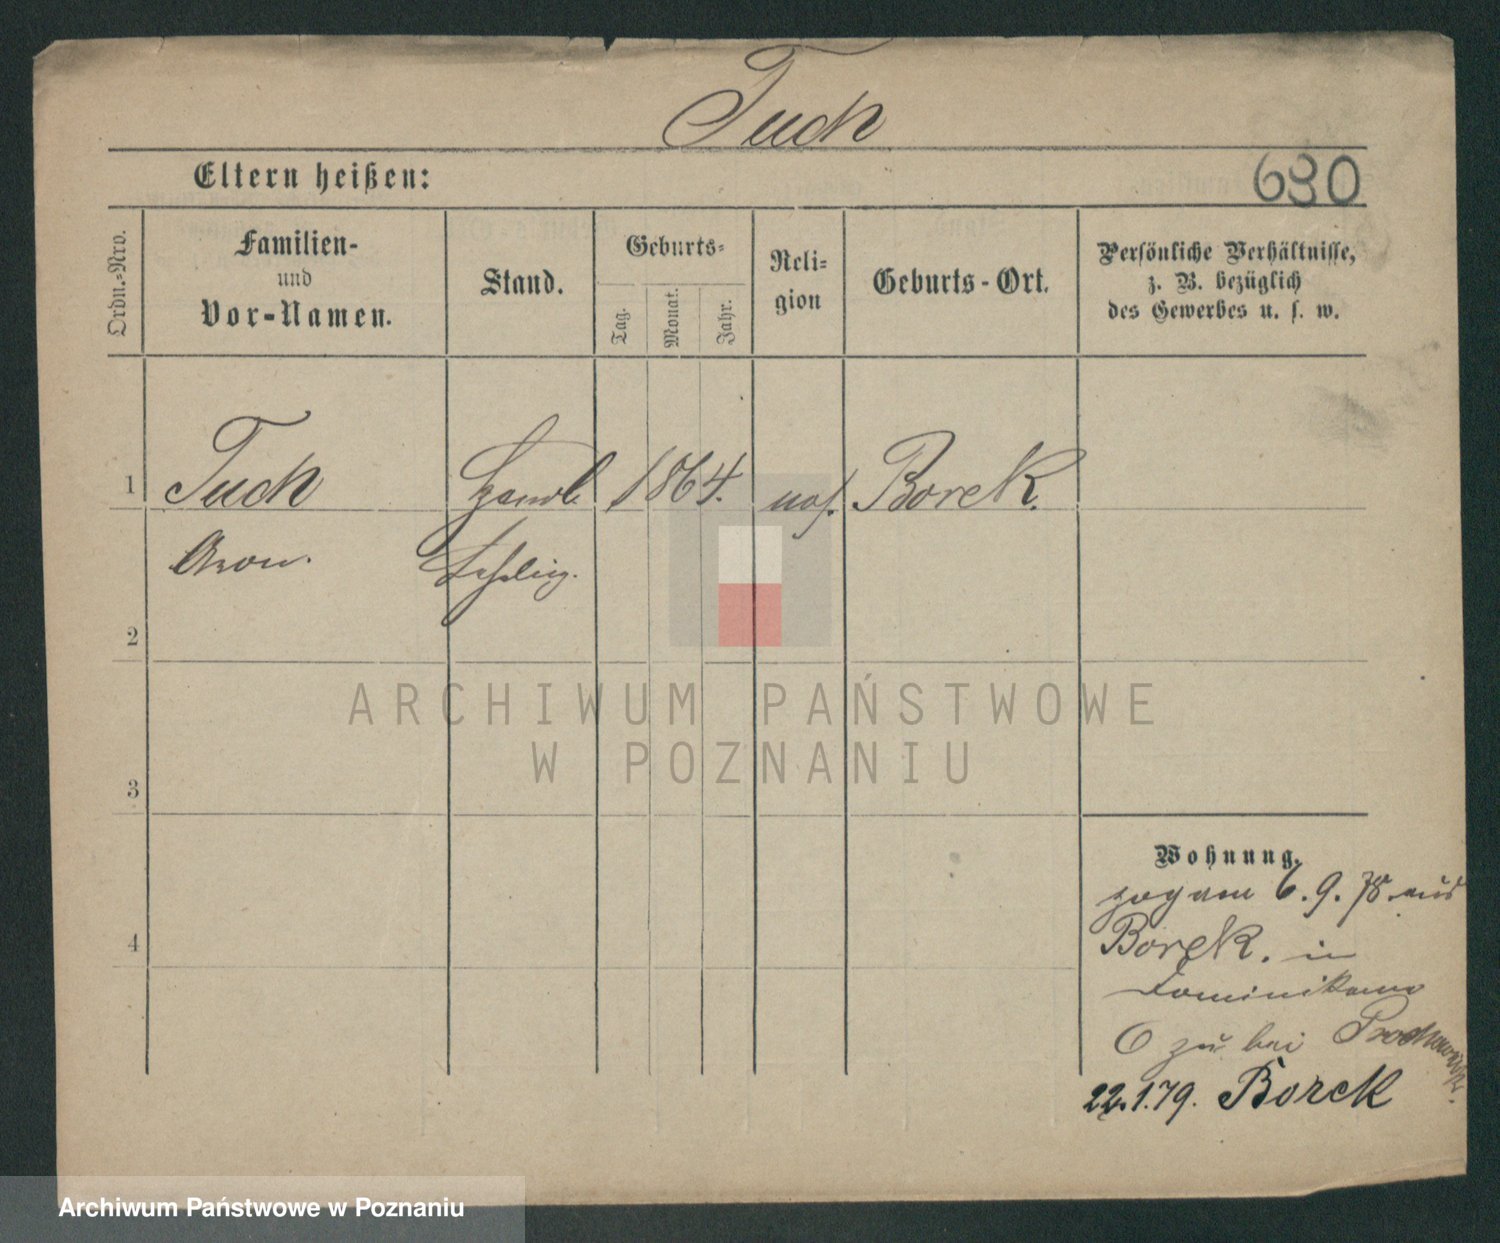 Tuch
Eltern heißen:
680
Ordn.-Nro.
Familien-
und
Vor-Namen.
Stand.
Geburts-
Tag.
Monat.
Jahr.
Reli-
gion
Geburts-Ort.
Persönliche Verhältnisse,
z. B. bezüglich
des Gewerbes u. s. w.
1
Tuch
Handl
1864.
mos.
Borek.
Aron.
Lehrling.
2
ARCHIWUM PAŃSTWOWE
W POZNANIU
3
Wohnung.
zog am 6.9.78. aus
4
Borek. in
Dominikaner
6 zu bei
22.1.79. Borek
Archiwum Państwowe w Poznaniu